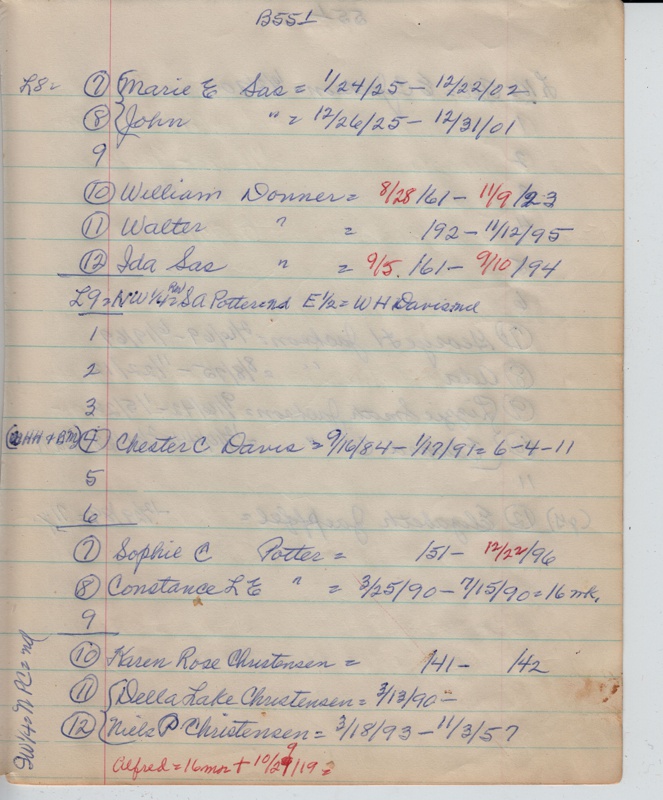 B551
L8= 7 Marie E Sas = 1/24/25 - 12/22/02
8 John " = 12/26/25 - 12/31/01
9
10 William Donner = 8/28/61 - 11/9/23
11 Walter " = 192 - 11/12/95
12 Ida Sas " = 9/5./61 - 9/10/94
L9 = NW 1/4 = SA Potter end E 1/2 = W H Davis end
1
2
3
(HH + BM) 4 Chester C Davis = 9/16/84 - 1/17/91 = 6-4-11
5
6
7 Sophie C Potter = /51 - 12/22/96
8 Constance L E " = 3/25/90 - 7/15/90 = 16 wk.
9
10 Karen Rose Christensen = /41 - /42
11 Della Lake Christensen = 3/13/90 -
12 Niels P Christensen = 3/18/93 - 11/3/57
SW 1/4 = N PC = end
Alfred = 16 mos + 10/29/19 =